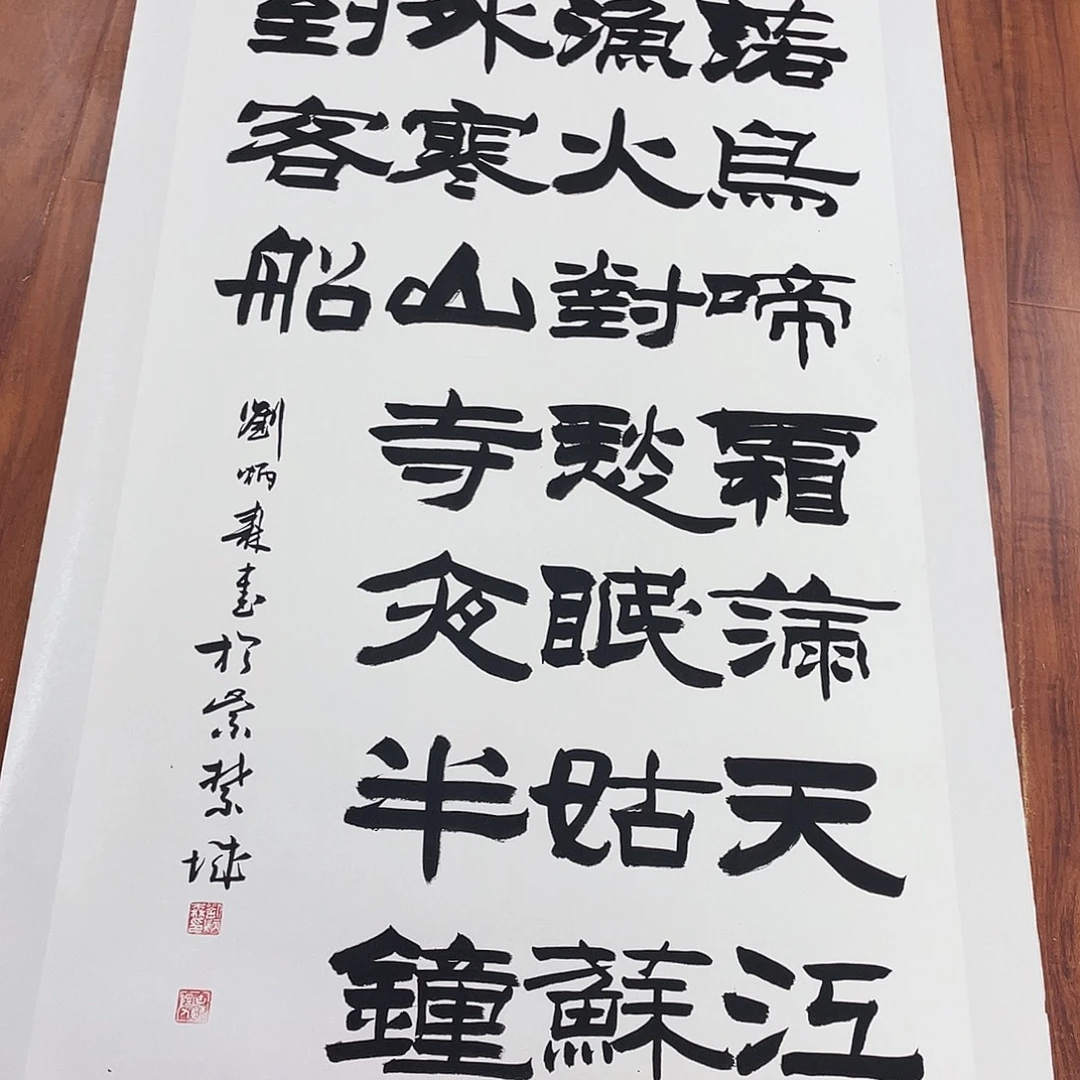 落烏啼霜滿天江
漁火對愁眠姑蘇
外寒山寺夜半鐘
到客船
劉炳森書於紫禁城